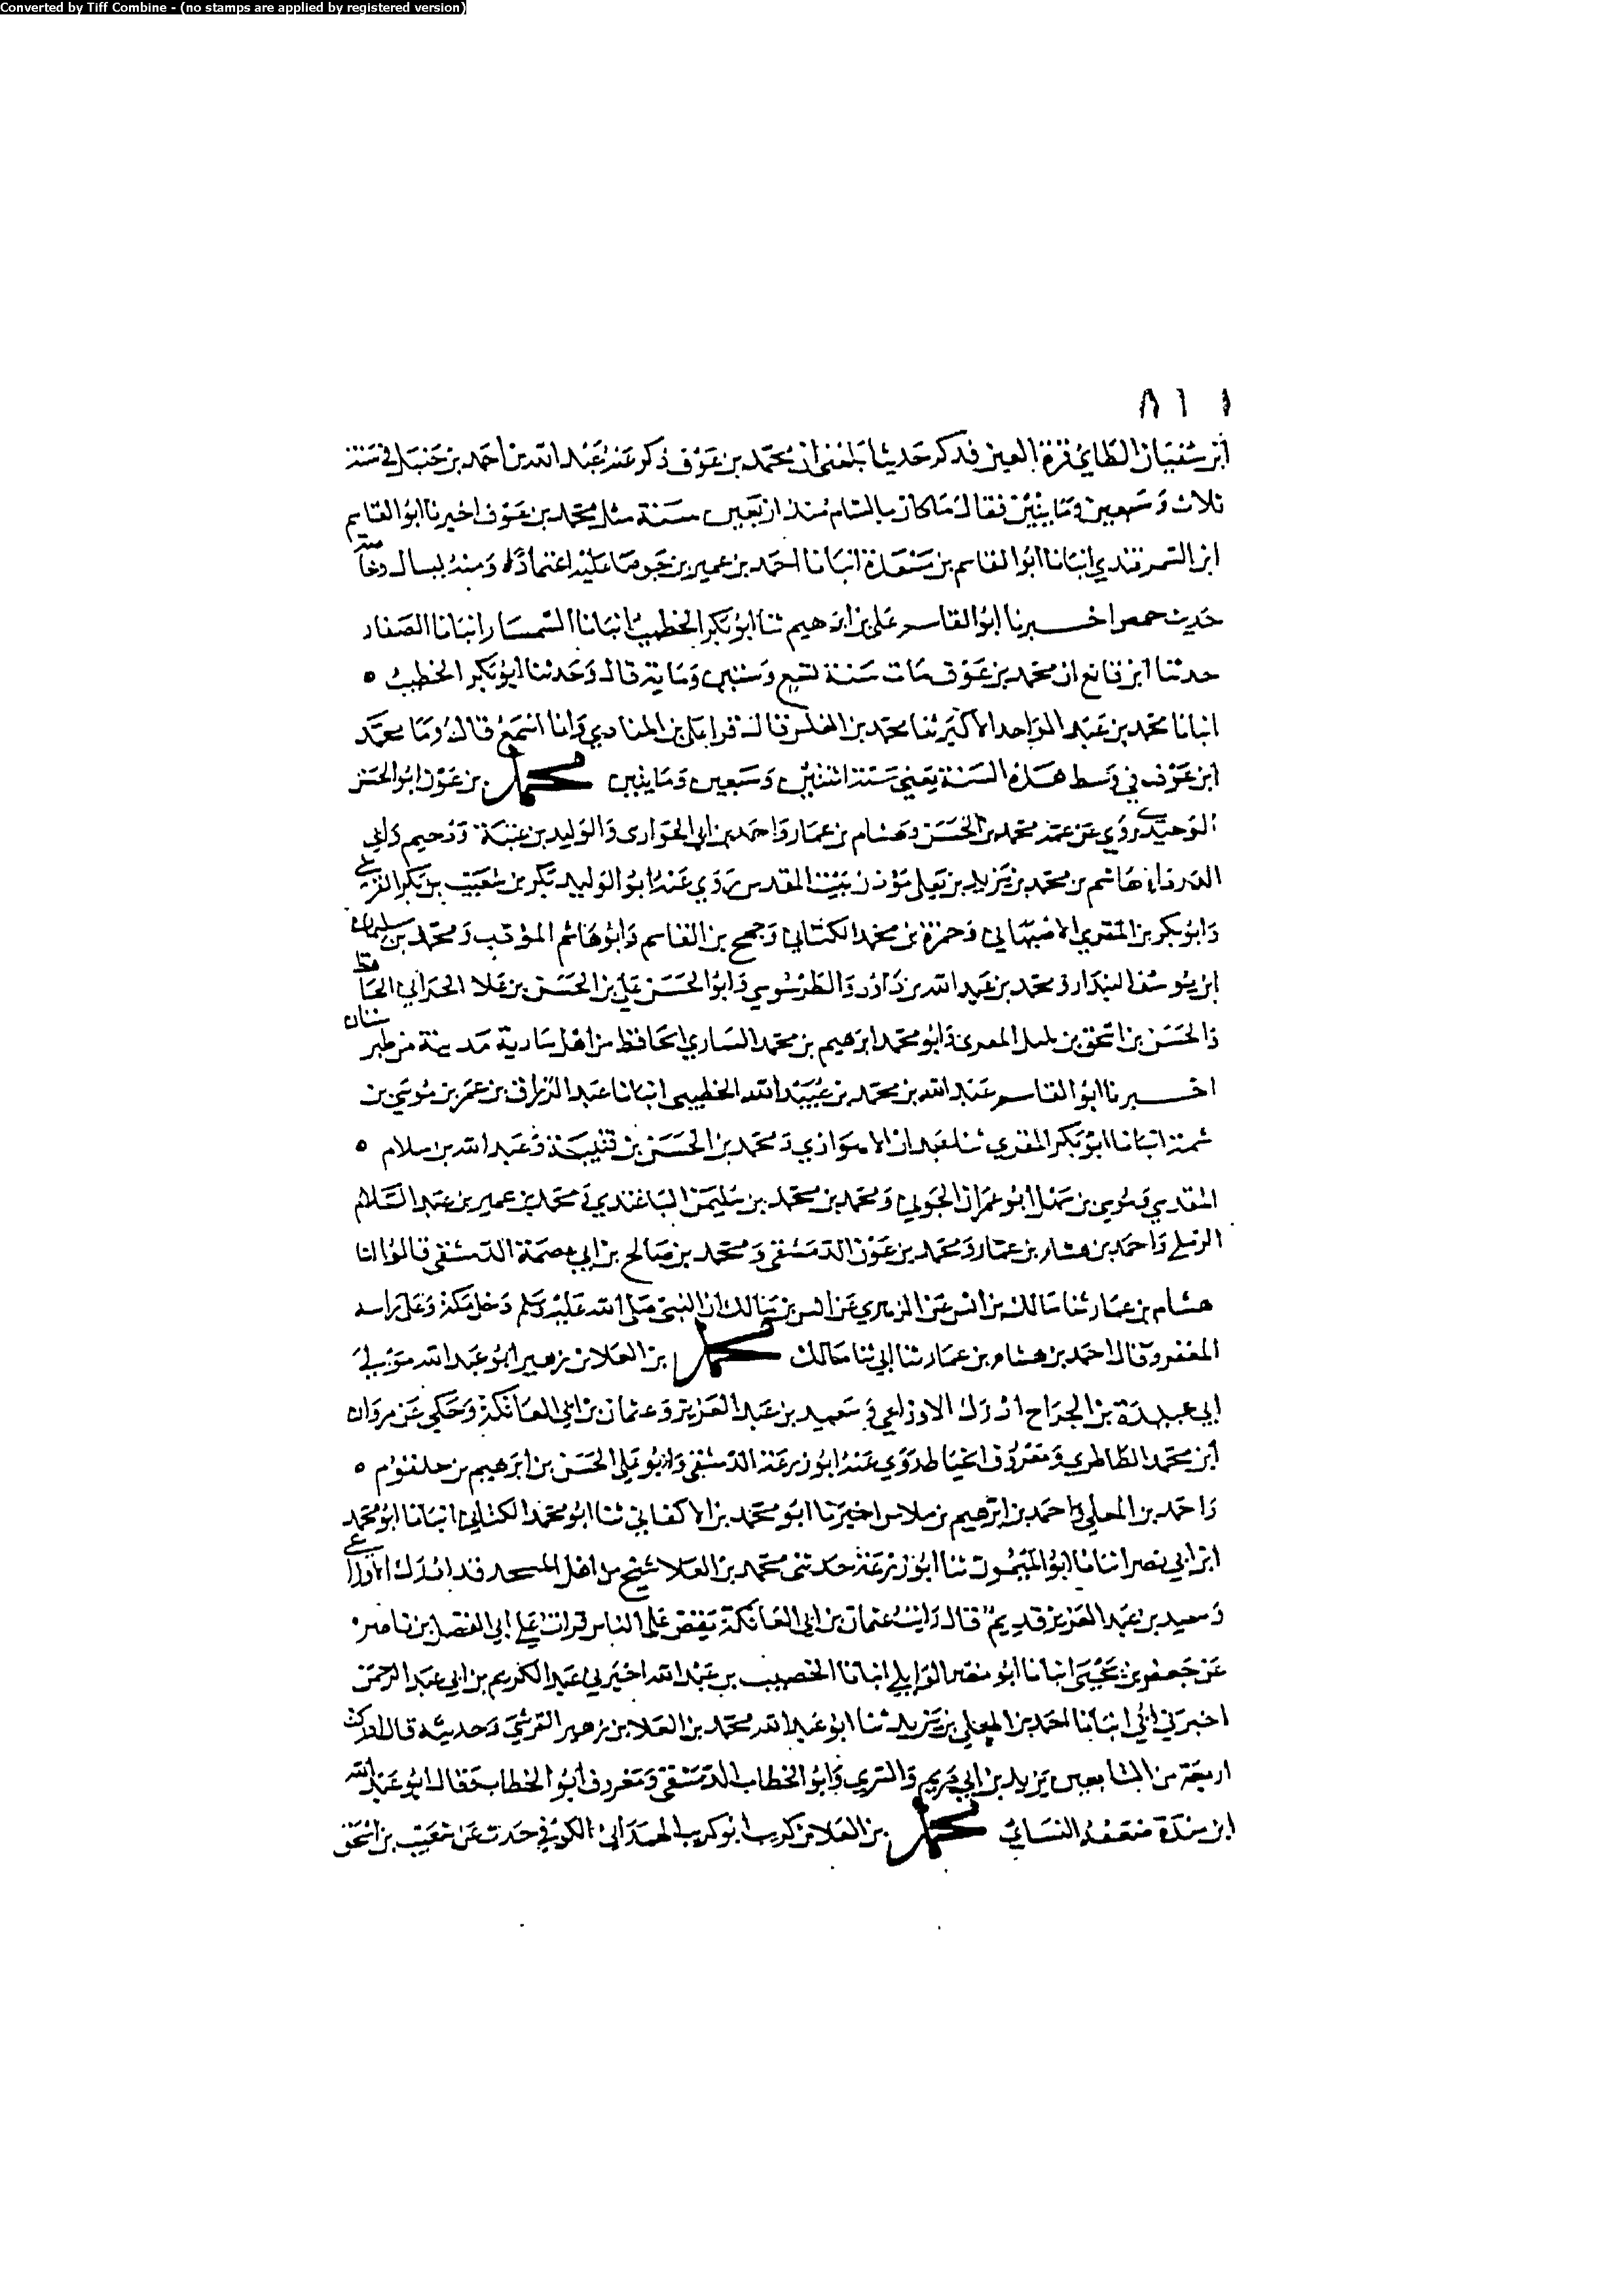 Converted by Tiff Combine - (no stamps are applied by registered version)
ابن سفيان الطائي قرة العين فذكر حديثا بلغني ان محمد بن عوف ذكر عند عبد الله بن احمد بن حنبل في سنة
ثلاث وسبعين ومايتين فقال ما كان بالشام منذ اربعين سنة مثل محمد بن عوف اخبرنا ابو القاسم
ابن السمرقندي انبانا ابو القاسم بن مسعدة انبانا احمد بن عمير بن جوصا عليه اعتماده ومنه يسال
حديث حمص اخبرنا ابو القاسم علي بن ابرهيم ثنا ابو بكر الخطيب انبانا السمسار انبانا الصفار
حدثنا ابن قانع ان محمد بن عوف مات سنة تسع وستين وماية قال وحدثنا ابو بكر الخطيب ٥
انبانا محمد بن عبد الواحد الاكبر ثنا محمد بن قال قرا علي بن المنادي وانا اسمع قال ومات محمد
ابن عوف في وسط هذه السنة يعني سنة اثنتين وسبعين ومايتين محمد بن عون ابو الحسن
الوحيدي روي عن محمد بن الحسن وهشام بن عمار واحمد بن ابي الحواري والوليد بن عتبة ودحيم وابي
الدرداء هاشم بن محمد بن يزيد بن يعلي مؤذن بيت المقدس روي عنه ابو الوليد بكر بن شعيب بن بكر القرشي
وابو بكر بن المقري الاصبهاني وحمزة بن محمد الكتاني وجمح بن القاسم وابو هاشم المؤدب ومحمد بن سليمان
ابن يوسف البندار ومحمد بن عبد الله بن داود الطرسوسي وابو الحسن علي بن الحسن بن علا الحراني الحافظ
والحسن بن اسحق بن بلبل المعري وابو محمد ابرهيم بن محمد الساري الحافظ من اهل سارية مدينة من طبرستان
اخبرنا ابو القاسم عبد الله بن محمد بن عبيد الله الخطيبي انبانا عبد الرزاق بن عمر بن موسي بن
شمة انبانا ابو بكر المقري ثنا عبدان الاهوازي ومحمد بن الحسن بن قتيبة وعبد الله بن سلام ٥
المقدسي وموسي بن سهل ابو عمران الجوني ومحمد بن محمد بن سليمن الباغندي ومحمد بن عمير بن عبد السلام
الرملي واحمد بن هشام بن عمار ومحمد بن عون الدمشقي ومحمد بن صالح بن ابي عصمة الدمشقي قالوا انا
هشام بن عمار ثنا مالك بن انس عن الزهري عن انس بن مالك ان النبي صلى الله عليه وسلم دخل مكة وعلى راسه
المغفر وقال احمد بن هشام بن عمار ثنا ابي ثنا مالك محمد بن العلا بن زهير ابو عبد الله مولي
ابي عبيدة بن الجراح ادرك الاوزاعي وسعيد بن عبد العزيز وعثمان بن ابي العاتكة وحكي عن مروان
ابن محمد الطاطري ومعروف الخياط روي عنه ابو زرعة الدمشقي وابو علي الحسن بن ابرهيم بن حلقوم ٥
واحمد بن المعلي واحمد بن ابرهيم بن ملاس اخبرنا ابو محمد بن الاكفاني ثنا ابو محمد الكتاني انبانا ابو محمد
ابن ابي نصر انبانا ابو الميمون ثنا ابو زرعة حدثني محمد بن العلا شيخ من اهل المسجد قد ادرك الاوزاعي
وسعيد بن عبد العزيز قديم قال رايت عثمان بن ابي العاتكة يقص على الناس قرات علي ابي الفضل بن ناصر
عن جعفر بن يحيى انبانا ابو نصر الوايلي انبانا الخصيب بن عبد الله اخبرني عبد الكريم بن ابي عبد الرحمن
اخبرني ابي انبانا احمد بن المعلي بن يزيد ثنا ابو عبد الله محمد بن العلا بن زهير القرشي وحديثه قال ادركت
اربعة من التابعين يزيد بن ابي مريم والسري وابو الخطاب الدمشقي ومعروف ابو الخطاب فقال ابو عبد الله
ابن مندة ضعفه النسائي محمد بن العلا بن كريب ابو كريب الهمداني الكوفي حدث عن شعيب بن اسحق